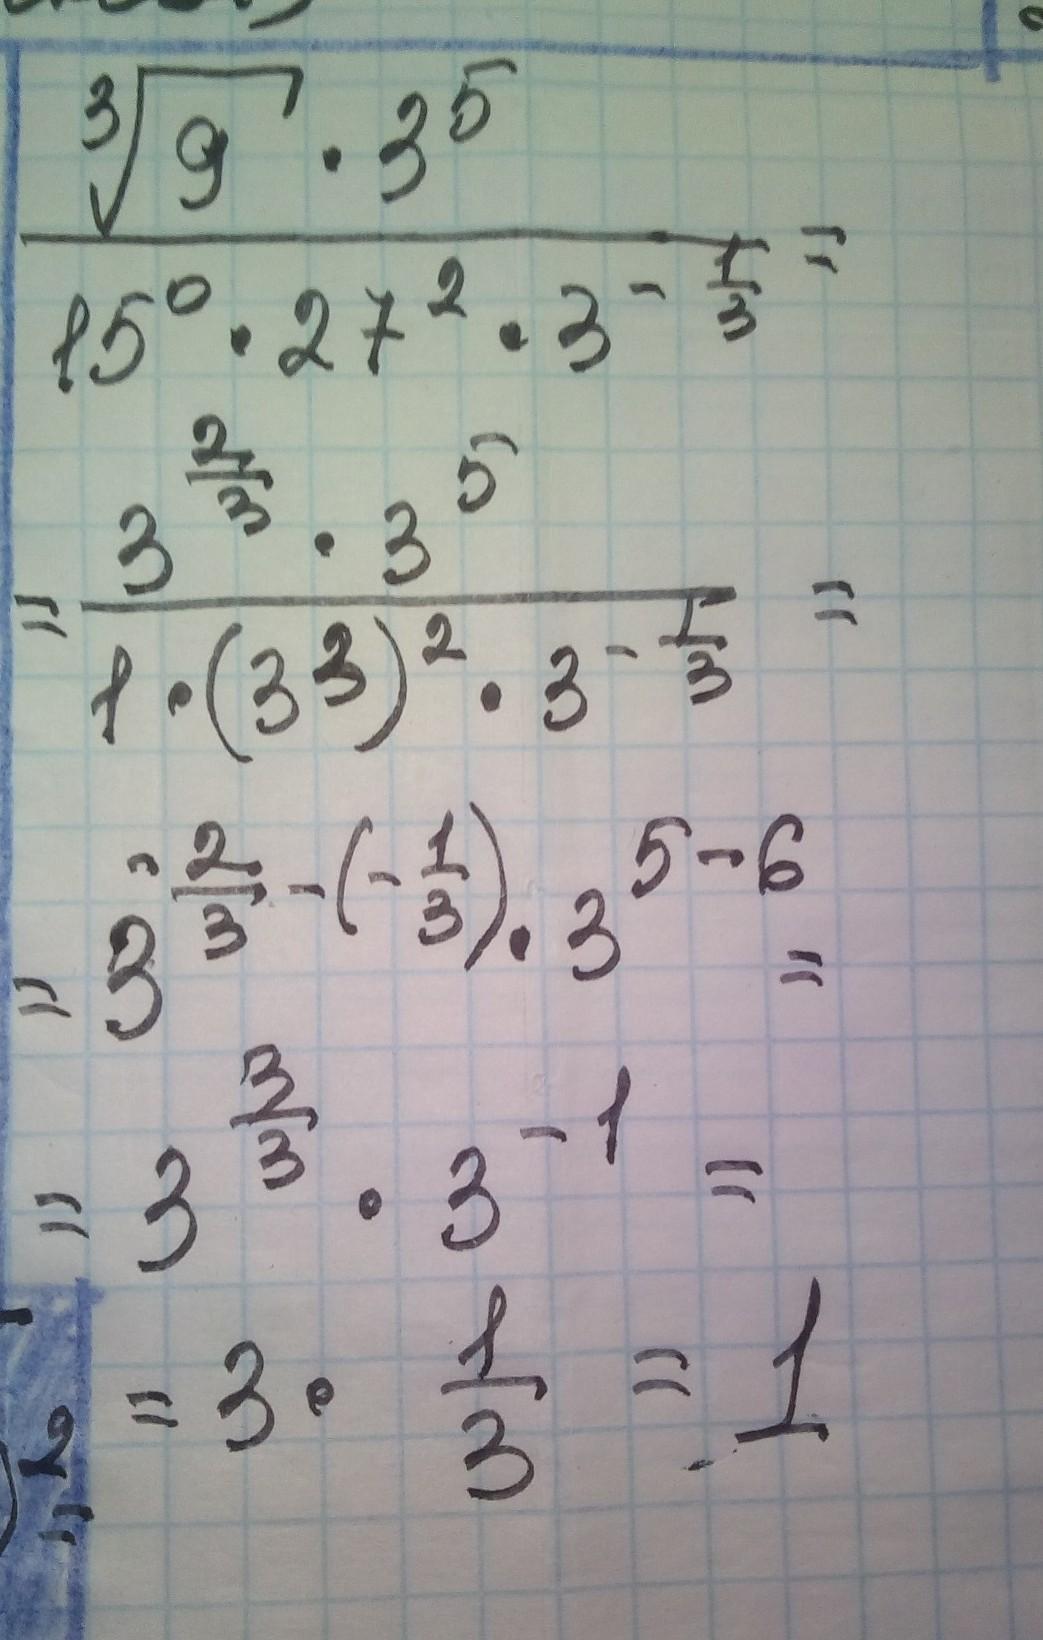 ∛9 · 3⁵ / 15⁰ · 27² · 3^(-1/3) =
= 3^(2/3) · 3⁵ / 1 · (3³)² · 3^(-1/3) =
= 3^(2/3 - (-1/3)) · 3^(5-6) =
= 3^(3/3) · 3^(-1) =
= 3 · 1/3 = 1
) 2
=